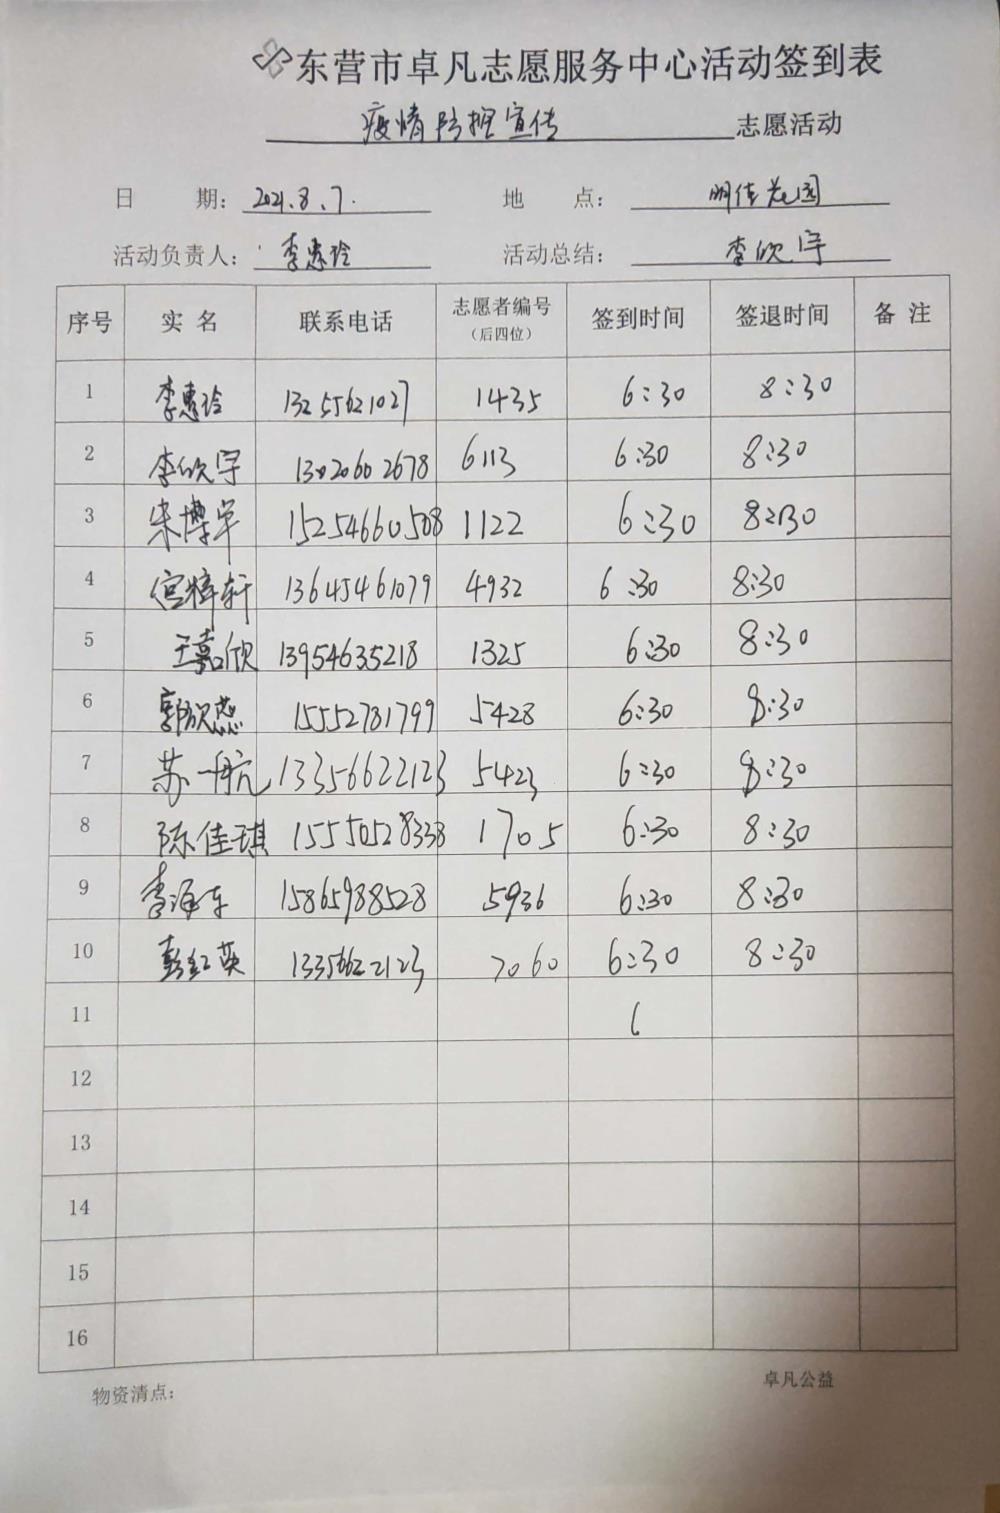 东营市卓凡志愿服务中心活动签到表
疫情防控宣传 志愿活动
日 期: 2021.8.7. 地 点: 明佳花园
活动负责人: 李惠玲 活动总结: 李欣宇
序号 实 名 联系电话 志愿者编号 (后四位) 签到时间 签退时间 备 注
1 李惠玲 13255621027 1435 6:30 8:30
2 李欣宇 13020602678 6113 6:30 8:30
3 宋博军 15254660508 1122 6:30 8:30
4 宫梓轩 13645461079 4932 6:30 8:30
5 王嘉欣 13954635218 1325 6:30 8:30
6 郭欣蕊 15552781799 5428 6:30 8:30
7 苏一航 13356622123 5423 6:30 8:30
8 陈佳琪 15550528338 1705 6:30 8:30
9 李海东 15865988528 5936 6:30 8:30
10 彭红英 13356622123 7060 6:30 8:30
11 6
12
13
14
15
16
物资清点: 卓凡公益